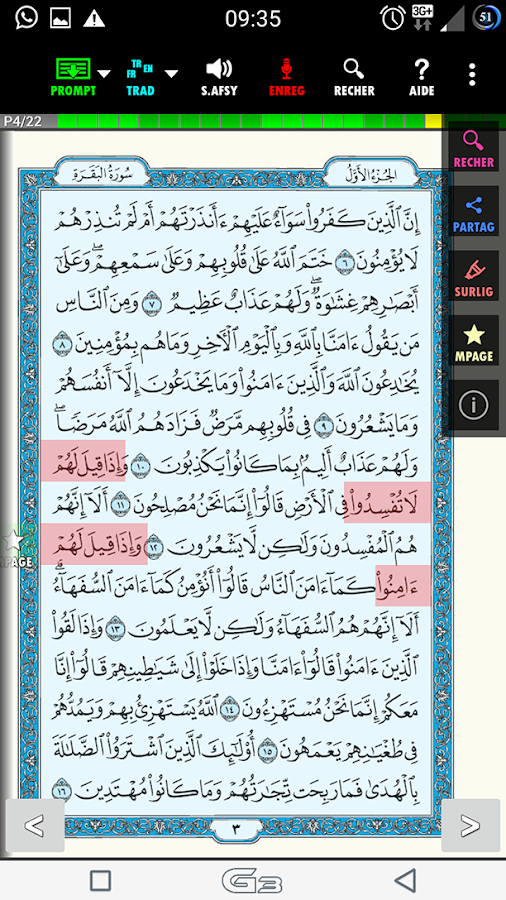 09:35
3G+
51
PROMPT
TR
FR EN
TRAD
S.AFSY
ENREG
RECHER
AIDE
P4/22
RECHER
PARTAG
SURLIG
MPAGE
سُورَةُ البَقَرَةِ
الجُزءُ الأَوَّلُ
إِنَّ ٱلَّذِينَ كَفَرُوا۟ سَوَآءٌ عَلَيْهِمْ ءَأَنذَرْتَهُمْ أَمْ لَمْ تُنذِرْهُمْ
لَا يُؤْمِنُونَ ٦ خَتَمَ ٱللَّهُ عَلَىٰ قُلُوبِهِمْ وَعَلَىٰ سَمْعِهِمْ ۖ وَعَلَىٰٓ
أَبْصَٰرِهِمْ غِشَٰوَةٌ ۖ وَلَهُمْ عَذَابٌ عَظِيمٌ ٧ وَمِنَ ٱلنَّاسِ
مَن يَقُولُ ءَامَنَّا بِٱللَّهِ وَبِٱلْيَوْمِ ٱلْءَاخِرِ وَمَا هُم بِمُؤْمِنِينَ ٨
يُخَٰدِعُونَ ٱللَّهَ وَٱلَّذِينَ ءَامَنُوا۟ وَمَا يَخْدَعُونَ إِلَّآ أَنفُسَهُمْ
وَمَا يَشْعُرُونَ ٩ فِى قُلُوبِهِم مَّرَضٌ فَزَادَهُمُ ٱللَّهُ مَرَضًا ۖ
وَلَهُمْ عَذَابٌ أَلِيمٌۢ بِمَا كَانُوا۟ يَكْذِبُونَ ١٠ وَإِذَا قِيلَ لَهُمْ
لَا تُفْسِدُوا۟ فِى ٱلْأَرْضِ قَالُوٓا۟ إِنَّمَا نَحْنُ مُصْلِحُونَ ١١ أَلَآ إِنَّهُمْ
هُمُ ٱلْمُفْسِدُونَ وَلَٰكِن لَّا يَشْعُرُونَ ١٢ وَإِذَا قِيلَ لَهُمْ
ءَامِنُوا۟ كَمَآ ءَامَنَ ٱلنَّاسُ قَالُوٓا۟ أَنُؤْمِنُ كَمَآ ءَامَنَ ٱلسُّفَهَآءُ ۗ
أَلَآ إِنَّهُمْ هُمُ ٱلسُّفَهَآءُ وَلَٰكِن لَّا يَعْلَمُونَ ١٣ وَإِذَا لَقُوا۟
ٱلَّذِينَ ءَامَنُوا۟ قَالُوٓا۟ ءَامَنَّا وَإِذَا خَلَوْا۟ إِلَىٰ شَيَٰطِينِهِمْ قَالُوٓا۟ إِنَّا
مَعَكُمْ إِنَّمَا نَحْنُ مُسْتَهْزِءُونَ ١٤ ٱللَّهُ يَسْتَهْزِئُ بِهِمْ وَيَمُدُّهُمْ
فِى طُغْيَٰنِهِمْ يَعْمَهُونَ ١٥ أُو۟لَٰٓئِكَ ٱلَّذِينَ ٱشْتَرَوُا۟ ٱلضَّلَٰلَةَ
بِٱلْهُدَىٰ فَمَا رَبِحَت تِّجَٰرَتُهُمْ وَمَا كَانُوا۟ مُهْتَدِينَ ١٦
MPAGE
٣
<
>
G3